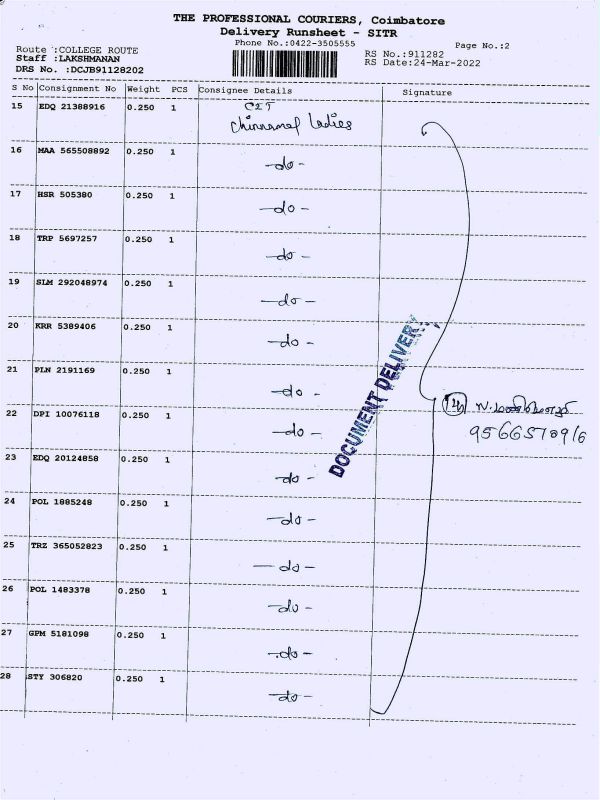 THE PROFESSIONAL COURIERS, Coimbatore
Delivery Runsheet - SITR
Phone No.:0422-3505555
Page No.:2
Route :COLLEGE ROUTE
Staff :LAKSHMANAN
DRS No. :DCJB91128202
RS No.:911282
RS Date:24-Mar-2022
S No Consignment No Weight PCS Consignee Details Signature
15 EDQ 21388916 0.250 1 CIT
Chinnamal Ladies
16 MAA 565508892 0.250 1 -do-
17 HSR 505380 0.250 1 -do-
18 TRP 5697257 0.250 1 -do-
19 SLM 292048974 0.250 1 -do-
20 KRR 5389406 0.250 1 -do-
21 PLN 2191169 0.250 1 -do-
22 DPI 10076118 0.250 1 -do-
23 EDQ 20124858 0.250 1 -do-
24 POL 1885248 0.250 1 -do-
25 TRZ 365052823 0.250 1 -do-
26 POL 1483378 0.250 1 -do-
27 GPM 5181098 0.250 1 -do-
28 STY 306820 0.250 1 -do-
DOCUMENT DELIVERY
14